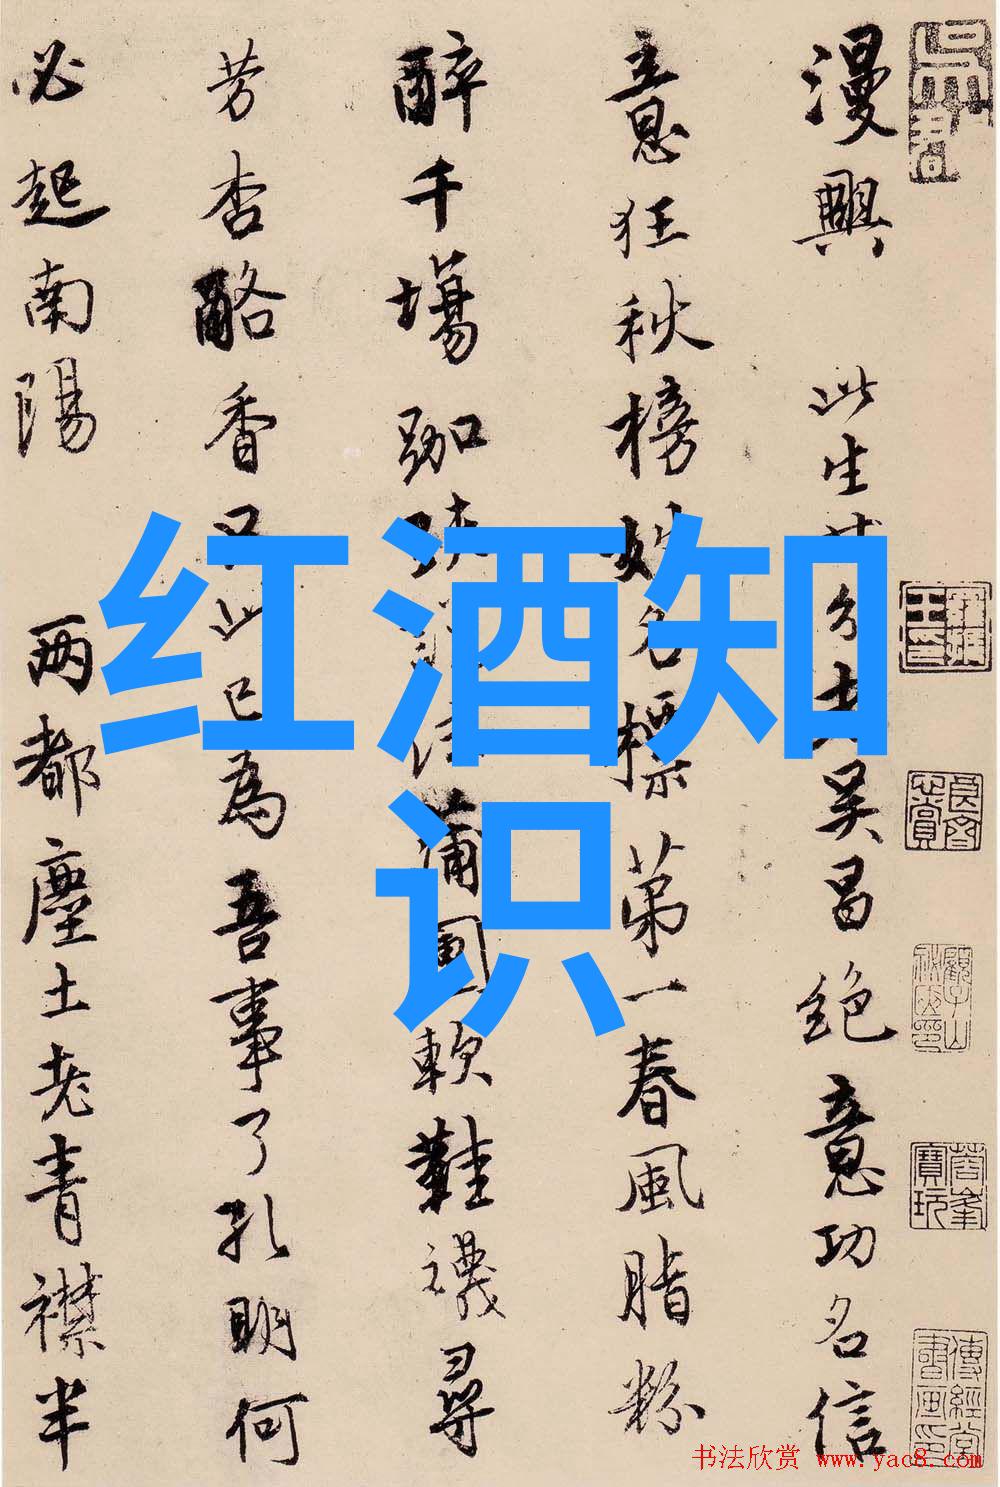 红酒知
识
漫興 此生甘分老吴昌絶意功名信
意狂秋榜才名標第一春風脂粉
醉千場跏趺説法蒲團軟鞵襪尋
芳杏酪香只此已為吾事了孔明何
必起南陽 两都塵土老青襟半
书法欣赏 www.yac8.com